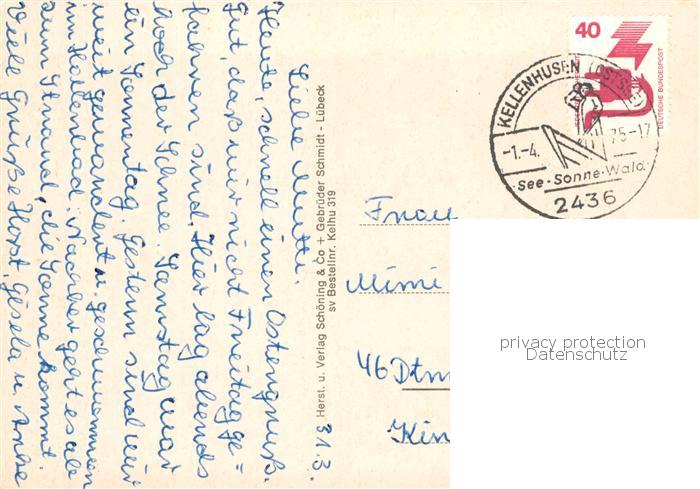 31.3.
Liebe Mutti.
Heute, schnell einen Ostergruß.
Gut, daß wir nicht Freitag ge=
fahren sind. Hier lag abends
hoch der Schnee. Samstag war
ein Sonnentag. Gestern sind wir
weit gewandert u. geschwommen
im Hallenbad. Nachher geht es ab
zum Strand, die Sonne kommt.
Viele Grüße Horst, Gisela u. Anke
Herst. u. Verlag Schöning & Co + Gebrüder Schmidt - Lübeck
sv Bestellnr. Kelhu 319
40
DEUTSCHE BUNDESPOST
KELLENHUSEN (OSTSEE)
-1.-4. 75-17
See-Sonne-Wald
2436
Frau
Mimi
46 Dtm
Kin
privacy protection
Datenschutz